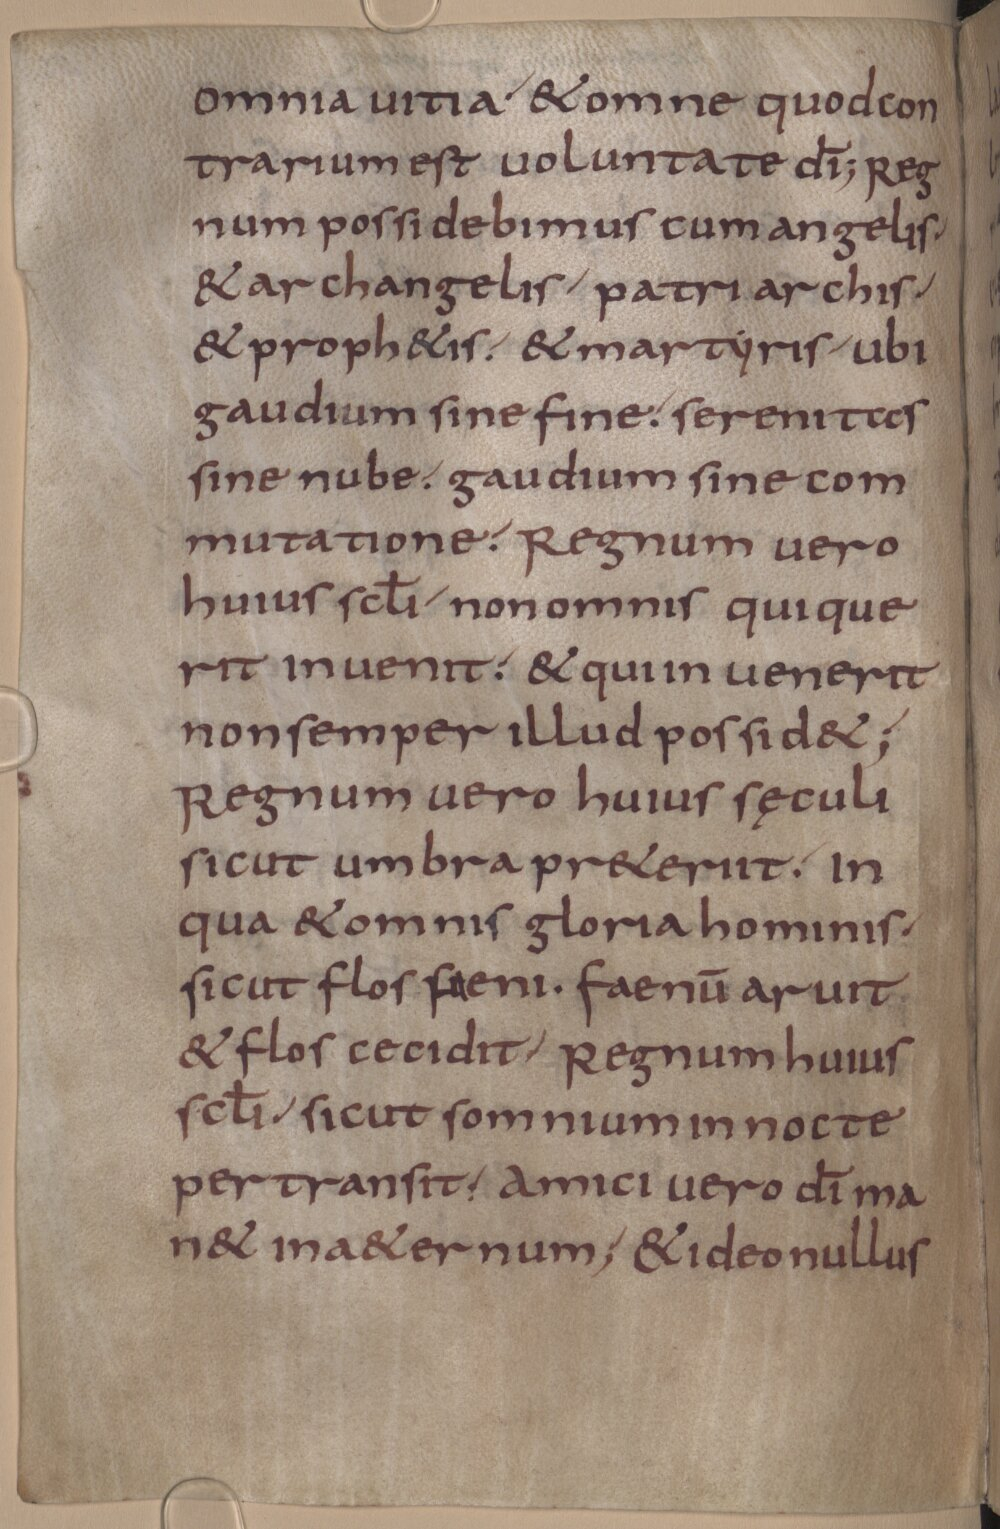 omnia uitia· & omne quod con
trarium est uoluntate dī; Reg
num possidebimus cum angelis·
& archangelis· patriarchis·
& proph&is· & martẏris· ubi
gaudium sine fine· serenitas
sine nube· gaudium sine com
mutatione· Regnum uero
huius scłi· non omnis qui que
rit inuenit· & qui inuenerit
non semper illud possid&;
Regnum uero huius sęculi
sicut umbra pr&eriit· In
qua & omnis gloria hominis·
sicut flos faeni. faenū aruit
& flos cecidit· Regnum huius
scłi· sicut somnium in nocte
pertransit· Amici uero dī ma
n& in a&ernum; & ideo nullus